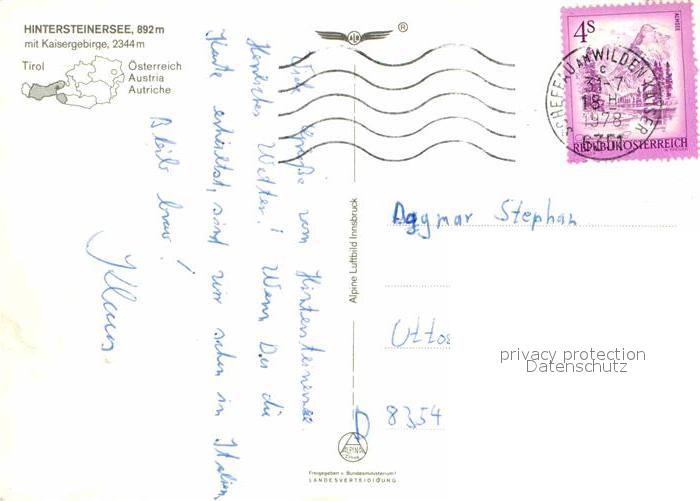 HINTERSTEINERSEE, 892m
mit Kaisergebirge, 2344m
Tirol
Österreich
Austria
Autriche
®
4s
ALMSEE
REPUBLIK ÖSTERREICH
SCHEFFAU AM WILDEN KAISER
c
31-7
18 H
1978
6351
Viele Grüße vom Hintersteinersee.
Herrliches Wetter! Wenn Du die
Karte erhältst, sind wir schon in Italien.
Bleib brav!
Klaus.
Alpine Luftbild Innsbruck
Dagmar Stephan
Uttos
8354
privacy protection
Datenschutz
ALPINE
Freigegeben v. Bundesministerium f.
LANDESVERTEIDIGUNG